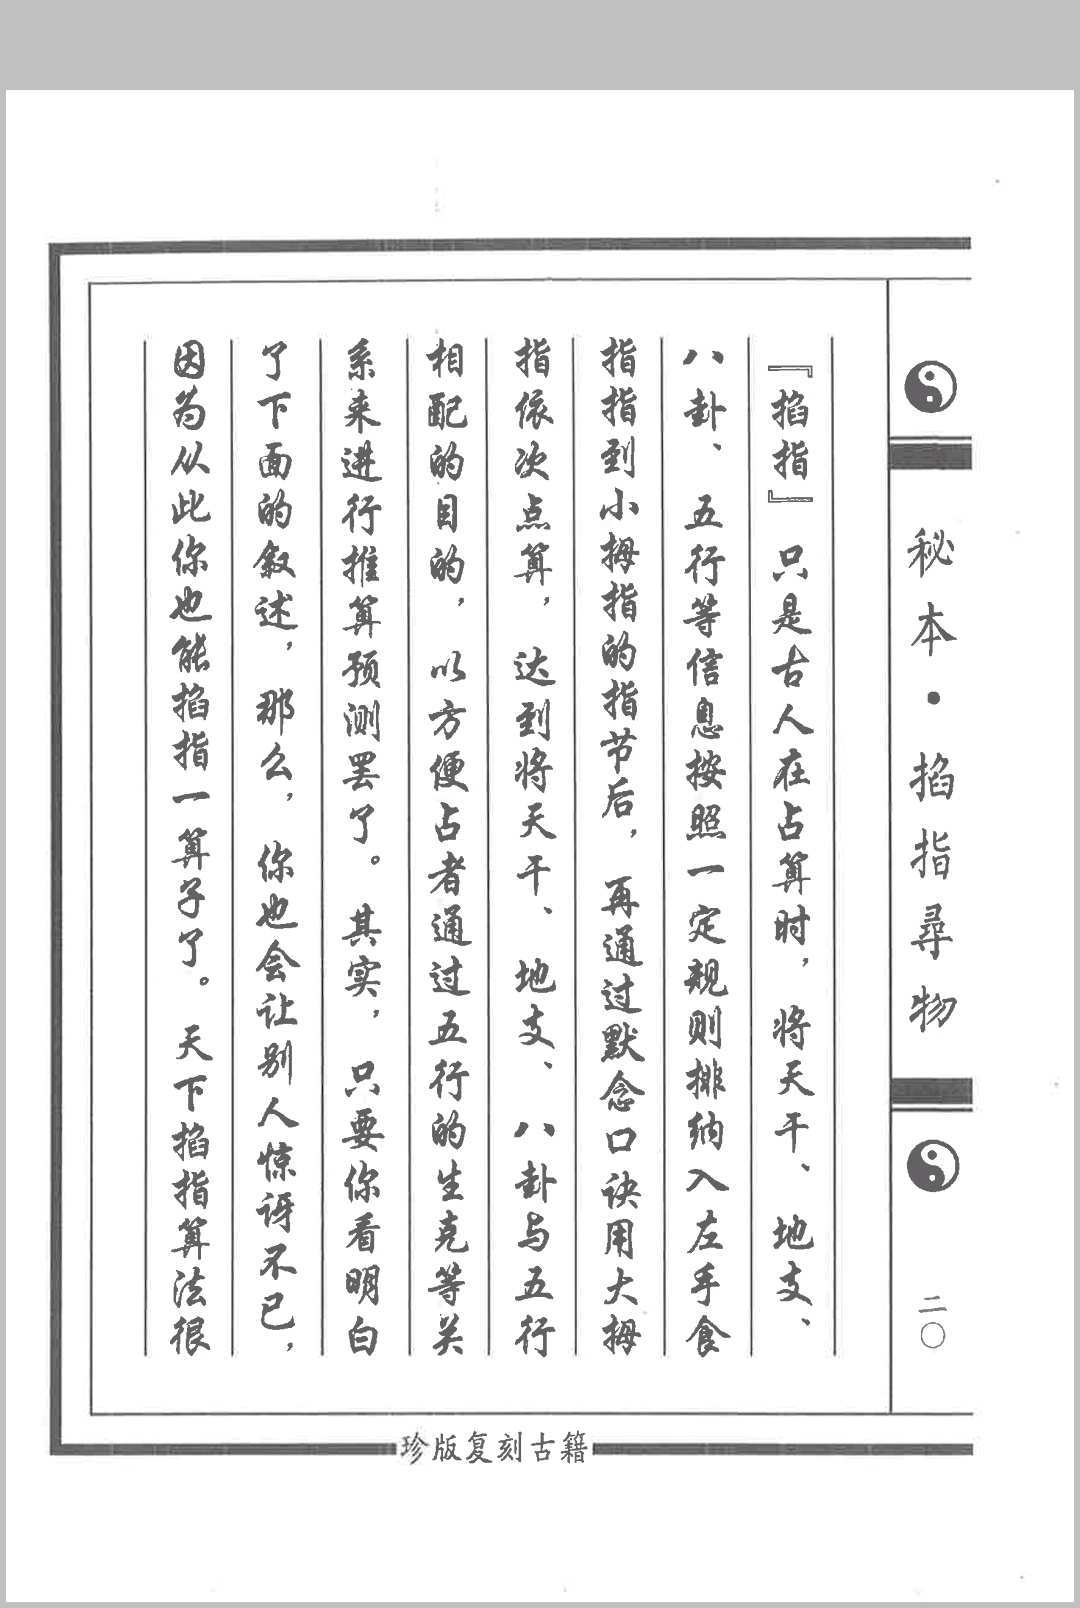 秘本·掐指尋物
二〇
『掐指』只是古人在占算时，将天干、地支、
八卦、五行等信息按照一定规则排纳入左手食
指指到小拇指的指节后，再通过默念口诀用大拇
指依次点算，达到将天干、地支、八卦与五行
相配的目的，以方便占者通过五行的生克等关
系来进行推算预测罢了。其实，只要你看明白
了下面的叙述，那么，你也会让别人惊讶不已，
因为从此你也能掐指一算子了。天下掐指算法很
珍版复刻古籍